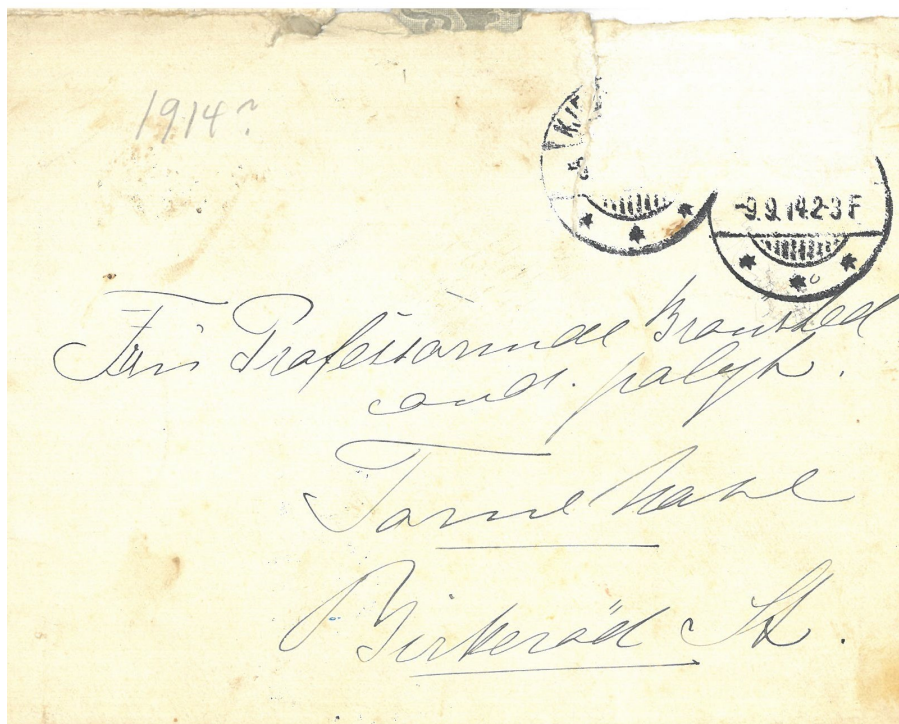 1914?
KJ
-9.9.14.2-3 F
Fru Professorinde Brønsted
cand. polyt.
Tornehave
Birkerød St.